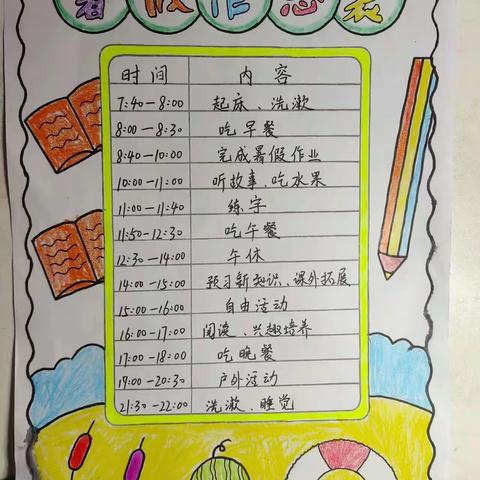 暑假作息表
时间 内容
7:40—8:00 起床、洗漱
8:00—8:30 吃早餐
8:40—10:00 完成暑假作业
10:00—11:00 听故事、吃水果
11:00—11:40 练字
11:50—12:30 吃午餐
12:30—14:00 午休
14:00—15:00 预习新知识、课外拓展
15:00—16:00 自由活动
16:00—17:00 阅读、兴趣培养
17:00—18:00 吃晚餐
19:00—20:30 户外活动
21:30—22:00 洗漱、睡觉